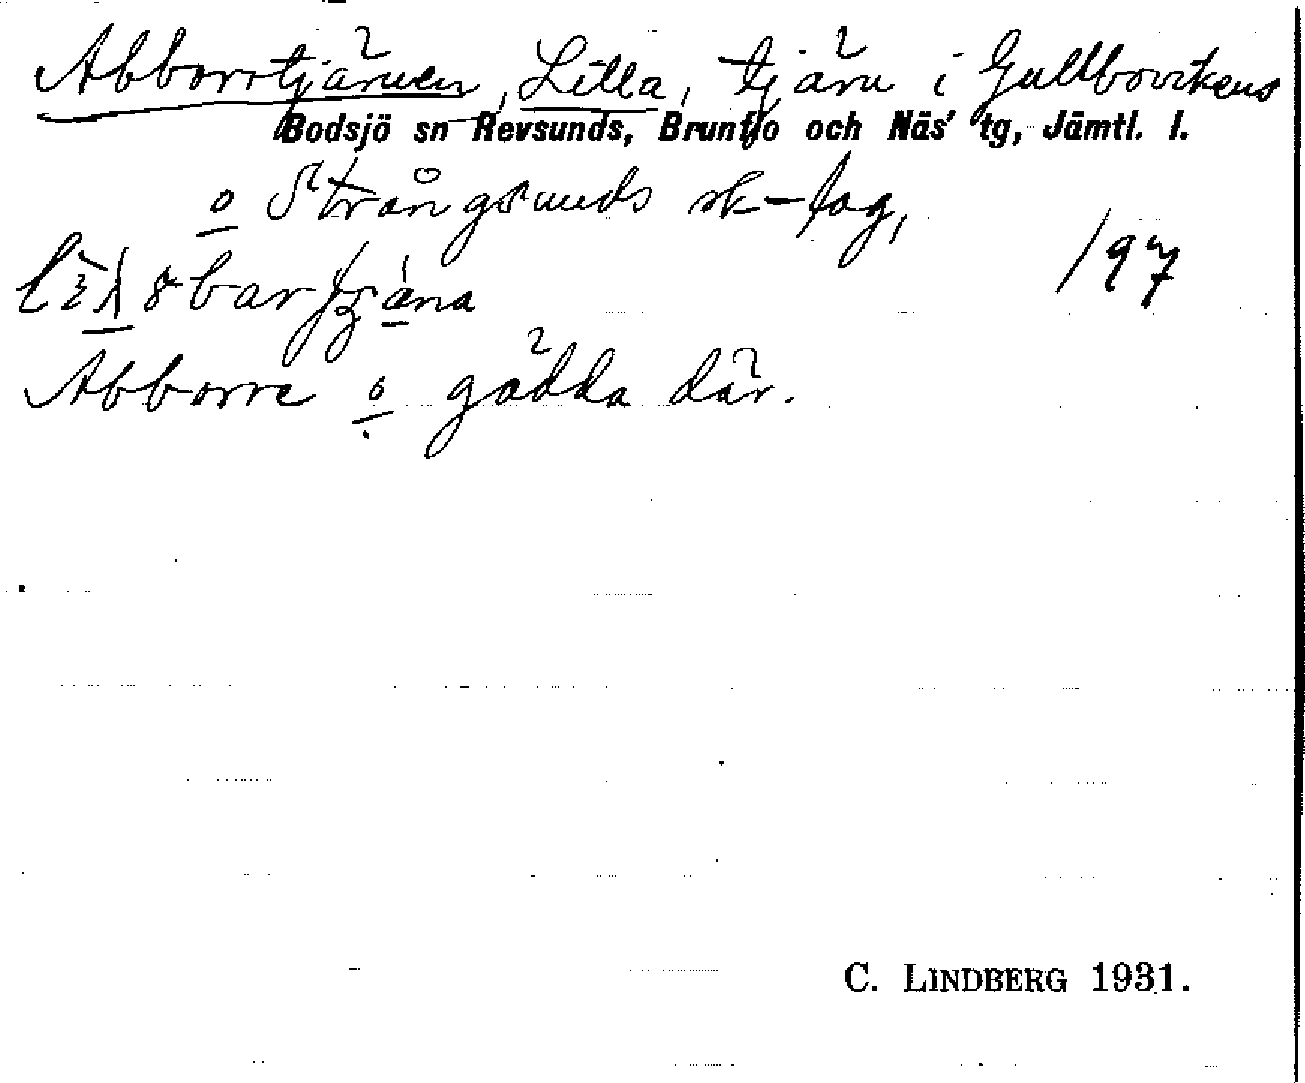 Abborrtjärnen, Lilla, tjärn i Gullbovikens
Bodsjö sn Revsunds, Brunflo och Näs' tg, Jämtl. l.
o Strångsunds sk-lag,
197
Abborre o gädda där.
C. LINDBERG 1931.